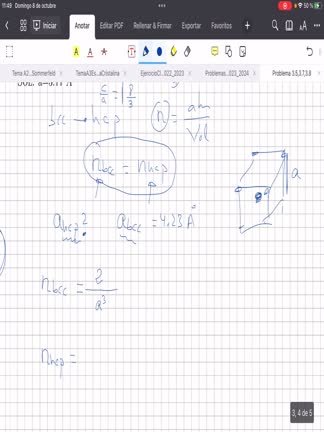 11:49 Domingo 8 de octubre
50 %
Iniciar Anotar Editar PDF Rellenar & Firmar Exportar Favoritos
Tema A2...Sommerfeld TemaA3Es...aCristalina EjercicioCl...022_2023 Problemas...023_2024 Problema 3.5,3.7,3.8
c/a = √8/3
bcc → hcp n = atm/Vol
n bcc = n hcp
a
a hcp? a bcc = 4.23 Å
n bcc = 2/a³
n hcp =
3, 4 de 5